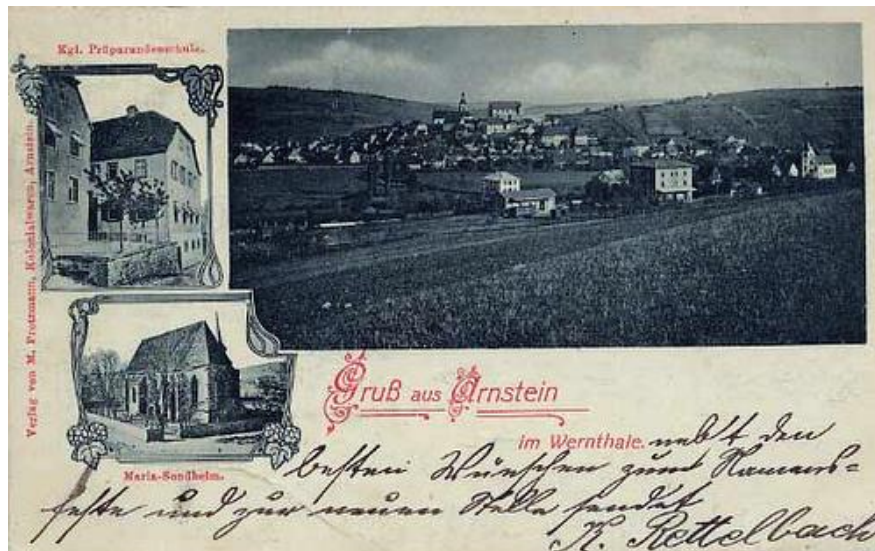 Kgl. Präparandenschule.
Verlag von M. Protzmann, Kolonialwaren, Arnstein.
Maria-Sondheim.
Gruß aus Arnstein
im Wernthale. nebst den
besten Wünschen zum Namens=
feste und zur neuen Stelle sendet
K. Rettelbach